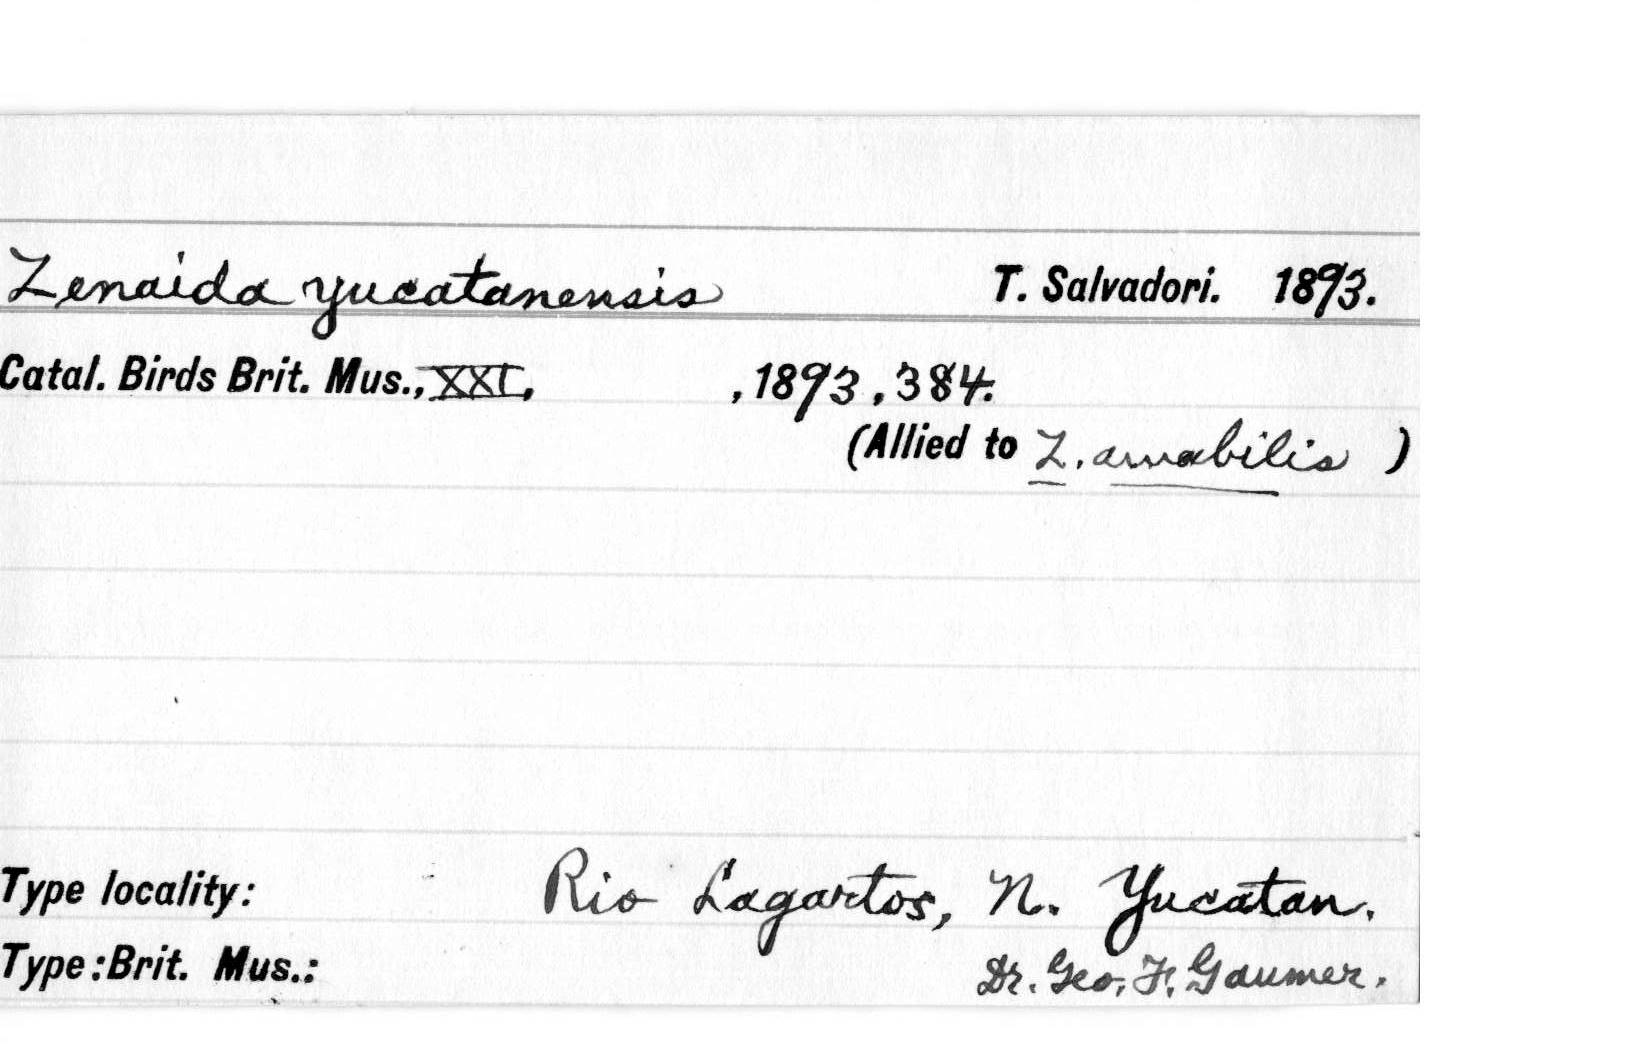 Zenaida yucatanensis T. Salvadori. 1893.
Catal. Birds Brit. Mus., XXI, , 1893, 384.
(Allied to Z. amabilis )
Type locality: Rio Lagartos, N. Yucatan.
Type: Brit. Mus.: Dr. Geo. F. Gaumer.